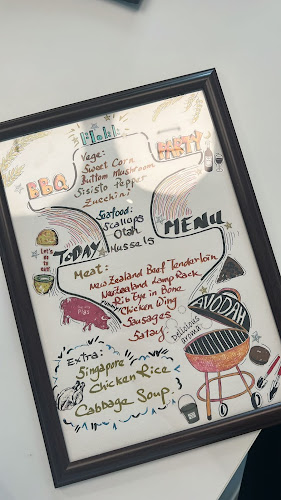 BBQ
PARTY
Vege:
Sweet Corn
Buttom Mushroom
Sisisto Pepper
Zucchini
Seafood:
Scallops
Otah
Mussels
TODAY
MENU
Let's
Meat:
New Zealand Beef Tenderloin
New Zealand Lamp Rack
Rib Eye in Bone
Chicken Wing
Sausages
Satay
Pigs
AVODAH
Delicious
aroma
Extra:
Singapore
Chicken Rice
Cabbage Soup